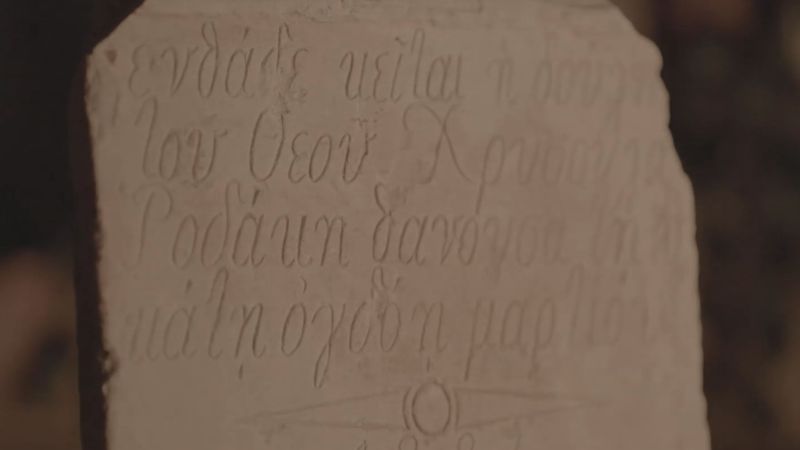 ενθάδε κεῖται ἡ δούλη
τοῦ Θεοῦ Χρυσούλα
Ῥοδάκη θανοῦσα τῇ
κάτῃ ὀγδόῃ μαρτίου